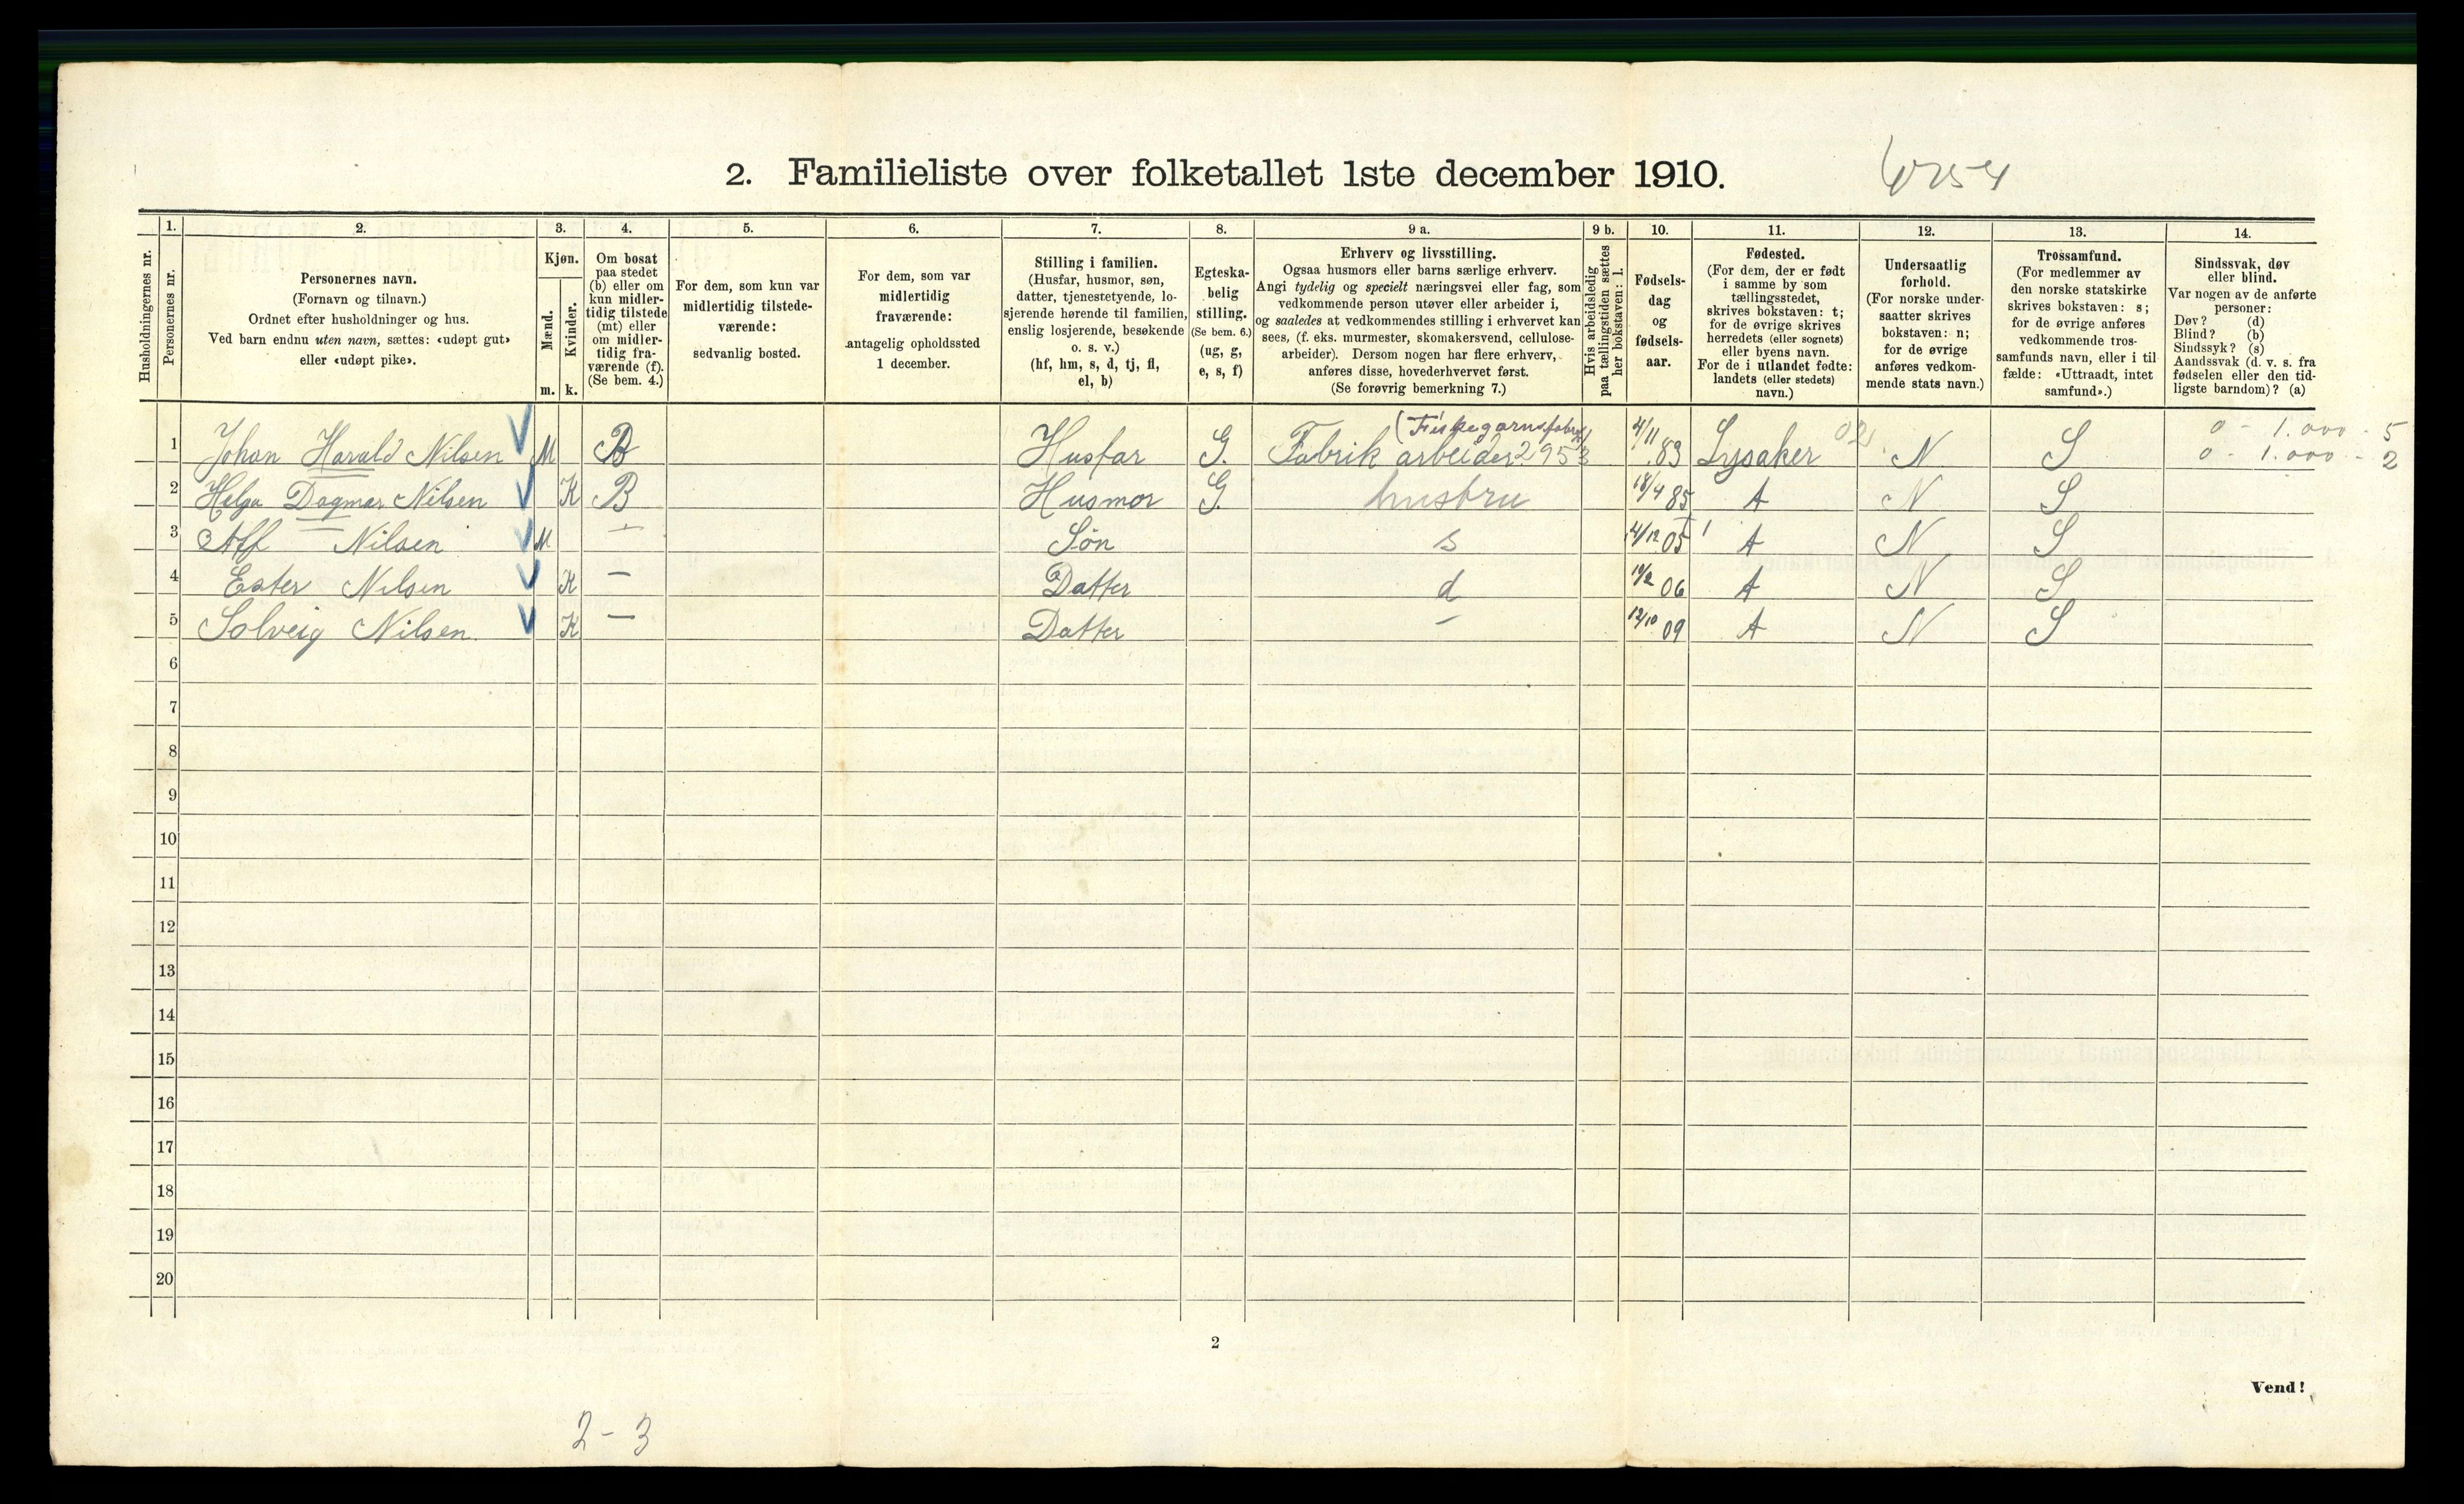 2. Familieliste over folketallet 1ste december 1910.
Husholdningernes nr.
1.
Personernes nr.
2.
Personernes navn.
(Fornavn og tilnavn.)
Ordnet efter husholdninger og hus.
Ved barn endnu uten navn, sættes: «udøpt gut»
eller «udøpt pike».
3.
Kjøn.
Mænd.
m.
Kvinder.
k.
4.
Om bosat
paa stedet
(b) eller om
kun midler-
tidig tilstede
(mt) eller
om midler-
tidig fra-
værende (f).
(Se bem. 4.)
5.
For dem, som kun var
midlertidig tilstede-
værende:
sedvanlig bosted.
6.
For dem, som var
midlertidig
fraværende:
antagelig opholdssted
1 december.
7.
Stilling i familien.
(Husfar, husmor, søn,
datter, tjenestetyende, lo-
sjerende hørende til familien,
enslig losjerende, besøkende
o. s. v.)
(hf, hm, s, d, tj, fl,
el, b)
8.
Egteska-
belig
stilling.
(Se bem. 6.)
(ug, g,
e, s, f)
9 a.
Erhverv og livsstilling.
Ogsaa husmors eller barns særlige erhverv.
Angi tydelig og specielt næringsvei eller fag, som
vedkommende person utøver eller arbeider i,
og saaledes at vedkommendes stilling i erhvervet kan
sees, (f. eks. murmester, skomakersvend, cellulose-
arbeider). Dersom nogen har flere erhverv,
anføres disse, hovederhvervet først.
(Se forøvrig bemerkning 7.)
9 b.
Hvis arbeidsledig
paa tællingstiden sættes
her bokstaven: l.
10.
Fødsels-
dag
og
fødsels-
aar.
11.
Fødested.
(For dem, der er født
i samme by som
tællingsstedet,
skrives bokstaven: t;
for de øvrige skrives
herredets (eller sognets)
eller byens navn.
For de i utlandet fødte:
landets (eller stedets)
navn.)
12.
Undersaatlig
forhold.
(For norske under-
saatter skrives
bokstaven: n;
for de øvrige
anføres vedkom-
mende stats navn.)
13.
Trossamfund.
(For medlemmer av
den norske statskirke
skrives bokstaven: s;
for de øvrige anføres
vedkommende tros-
samfunds navn, eller i til
fælde: «Uttraadt, intet
samfund».)
14.
Sindssvak, døv
eller blind.
Var nogen av de anførte
personer:
Døv? (d)
Blind? (b)
Sindssyk? (s)
Aandssvak (d. v. s. fra
fødselen eller den tid-
ligste barndom)? (a)
(Fiskegarnsfabrik) 0 - 1.000 - 5
1 Johan Harald Nilsen M B Husfar G. Fabrik arbeider 2953 4/11 83 Lysaker 02 N S 0 - 1.000 - 2
2 Helga Dagmar Nilsen K B Husmor G. hustru 18/4 85 A N S
3 Alf Nilsen M — Sön s 4/12 05 A N S
4 Ester Nilsen K — Datter d 06 A N S
5 Solveig Nilsen. K — Datter — 12/10 09 A N S
6
7
8
9
10
11
12
13
14
15
16
17
18
19
20
2
Vend!
2 - 3